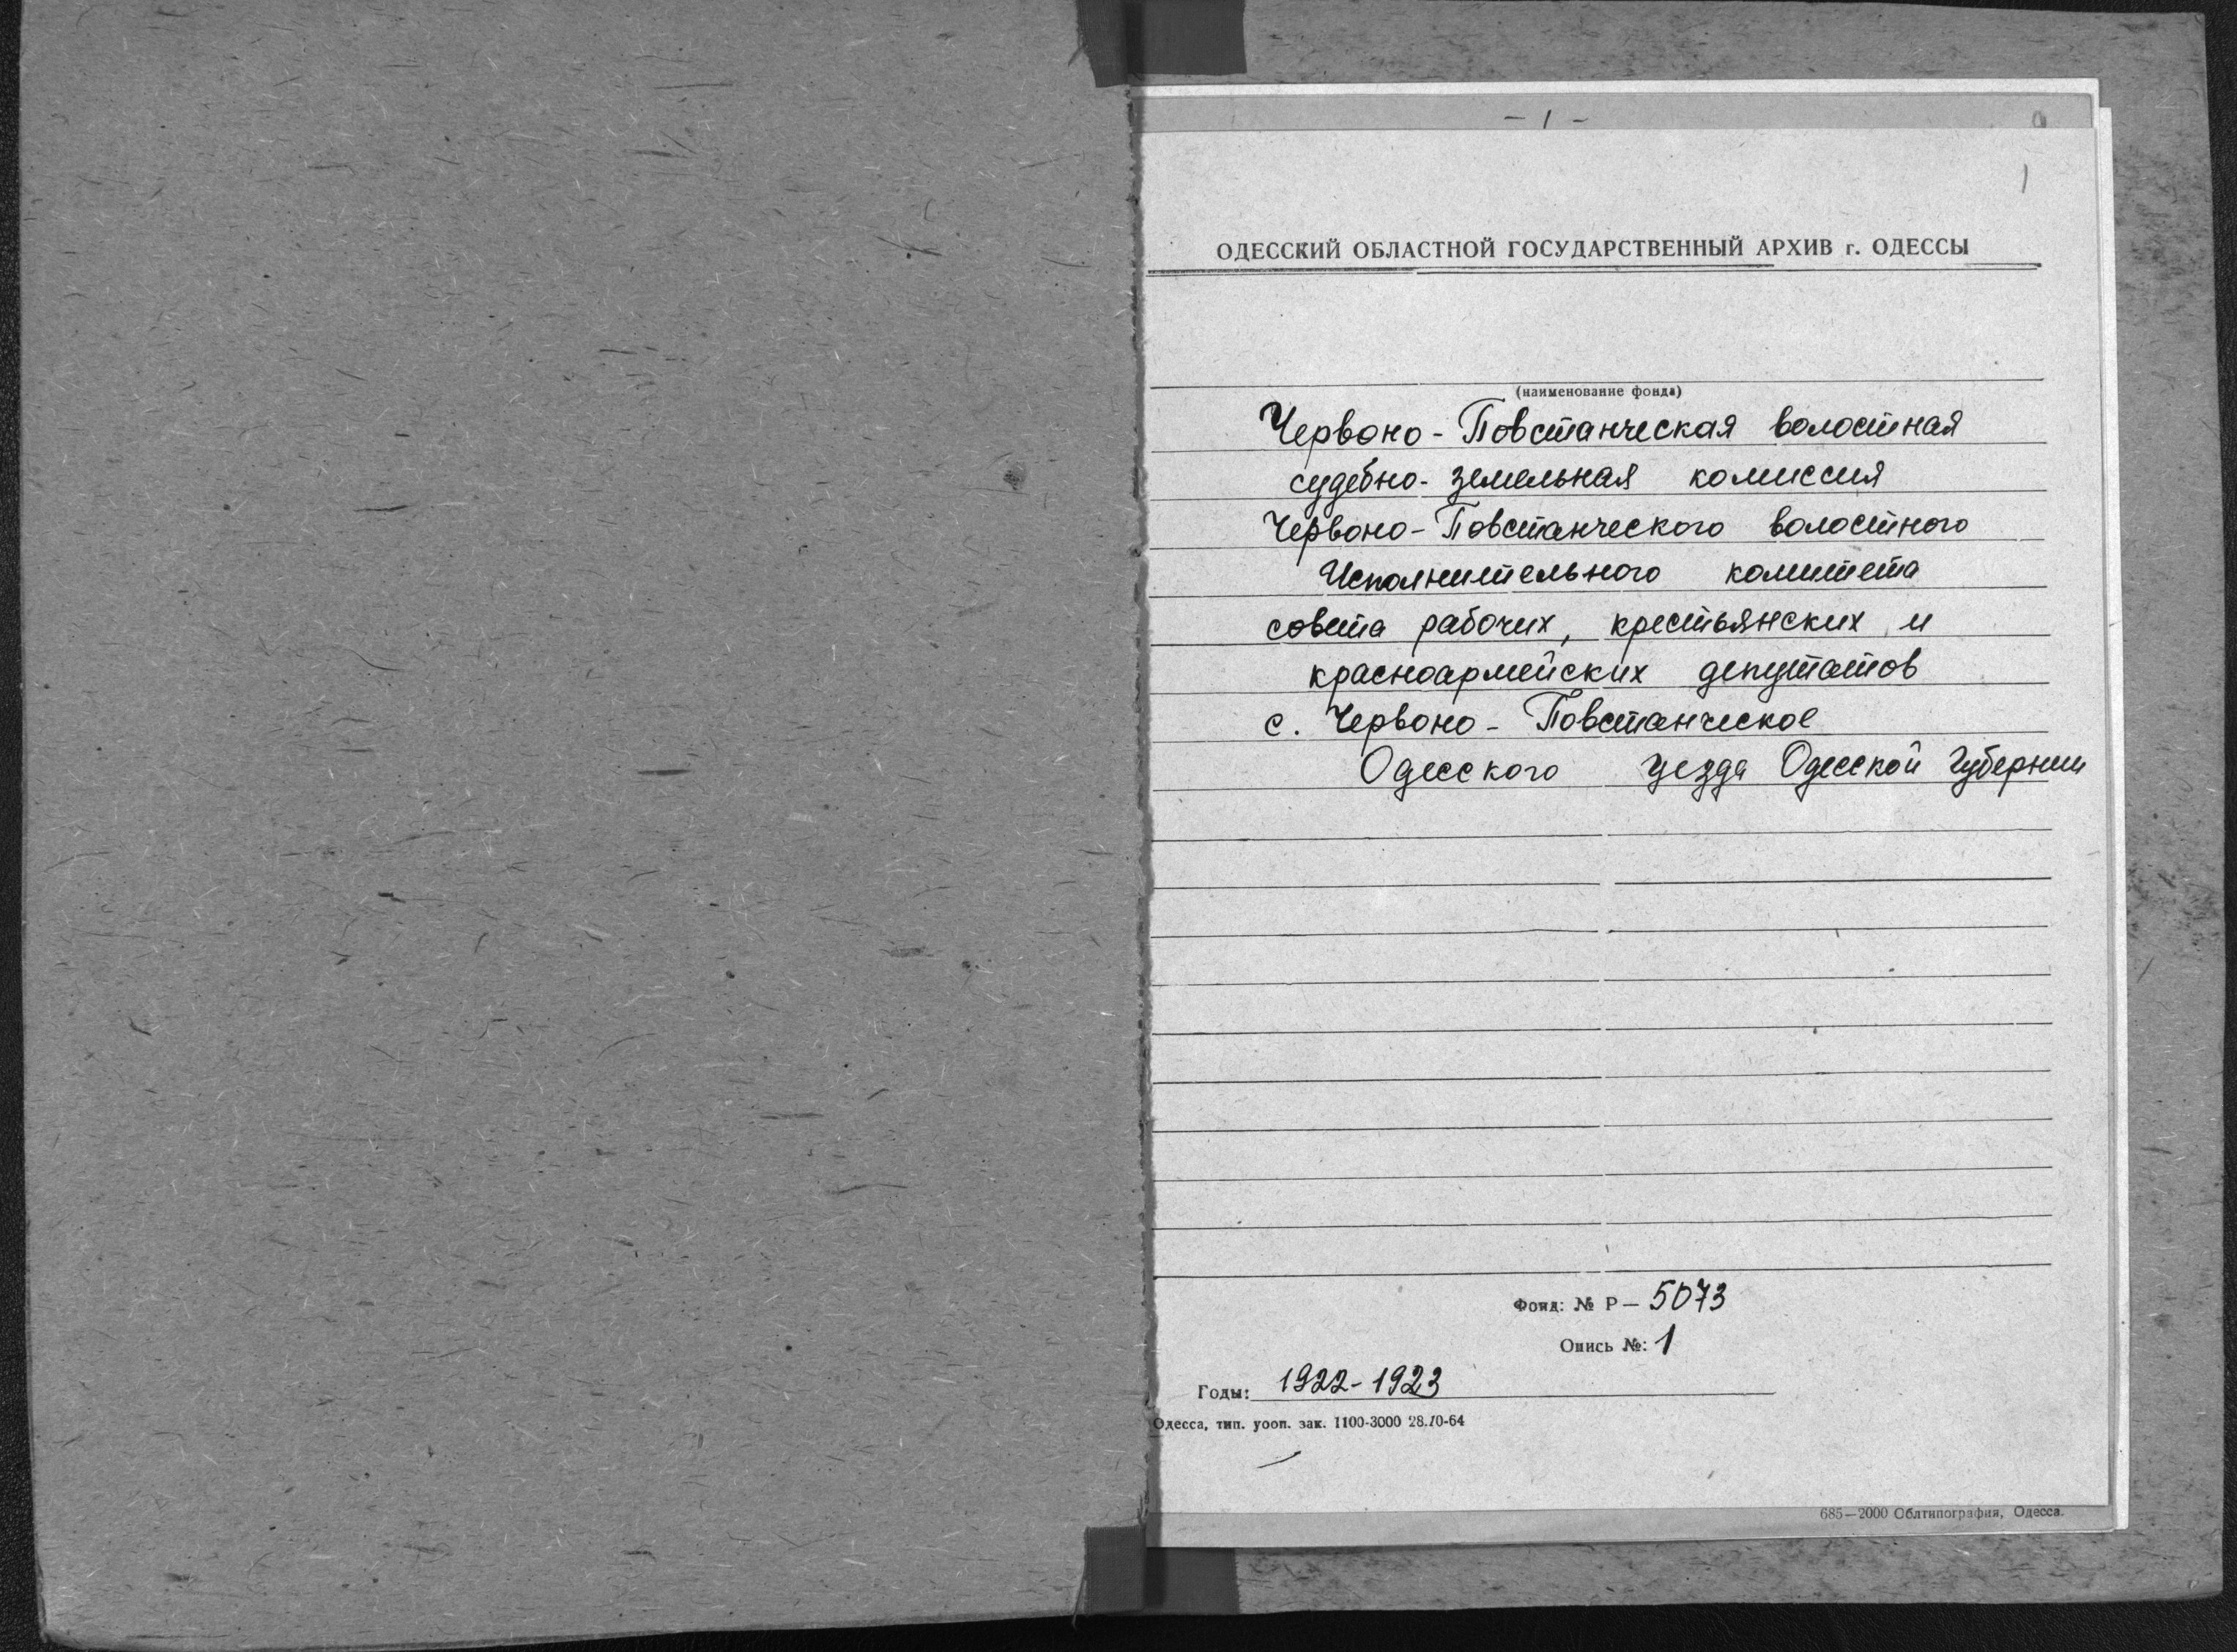 - 1 -
1
ОДЕССКИЙ ОБЛАСТНОЙ ГОСУДАРСТВЕННЫЙ АРХИВ г. ОДЕССЫ
(наименование фонда)
Червоно-Повстанческая волостная
судебно-земельная комиссия
Червоно-Повстанческого волостного
Исполнительного комитета
совета рабочих, крестьянских и
красноармейских депутатов
с. Червоно-Повстанческое
Одесского уезда Одесской губернии
Фонд: № Р— 5073
Опись №: 1
Годы: 1922-1923
Одесса, тип. уооп. зак. 1100-3000 28.10-64
685—2000 Облтипография, Одесса.